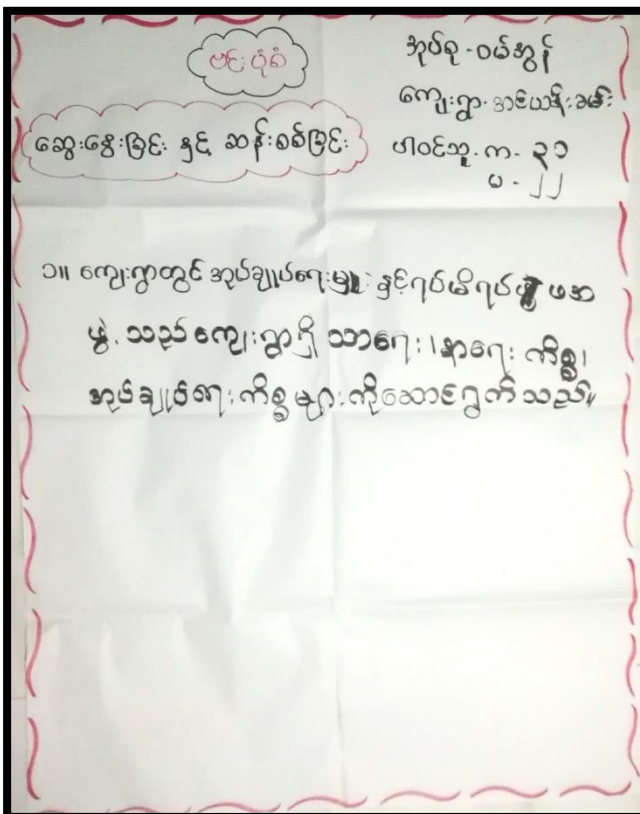 ဗင်းပုံစံ
ဆွေးနွေးခြင်း နှင့် ဆန်းစစ်ခြင်း
အုပ်စု - ဝမ်အွန်
ကျေးရွာ - အင်ယန်းခမ်း
ပါဝင်သူ - က - ၃၁
မ - ၂၂
၁။ ကျေးရွာတွင် အုပ်ချုပ်ရေးမှူး နှင့်ရပ်မိရပ်ဖ
ဖွဲ့ သည် ကျေးရွာရှိ သာရေး၊ နာရေး ကိစ္စ၊
အုပ်ချုပ်ရေး ကိစ္စ များကိုဆောင်ရွက်သည်။